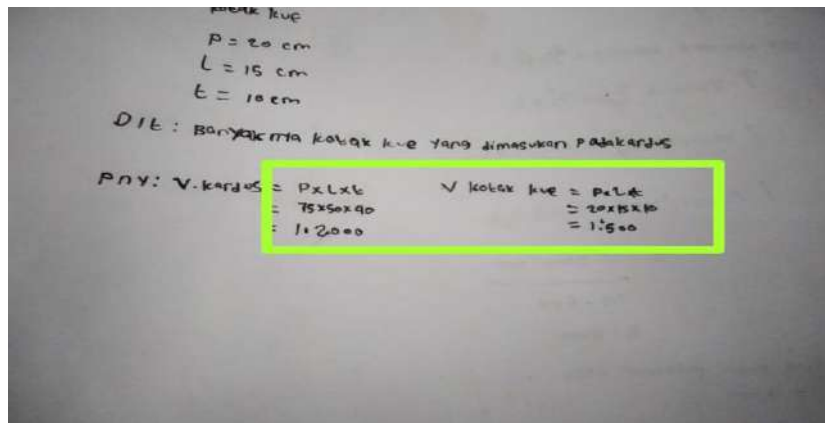 kotak kue
P = 20 cm
L = 15 cm
t = 10 cm
Dit : Banyaknya kotak kue yang dimasukan padakardus
Pny: V. kardus = PxLxt
= 75x50x40
= 1.2000
V kotak kue = PxLxt
= 20x15x10
= 1.500